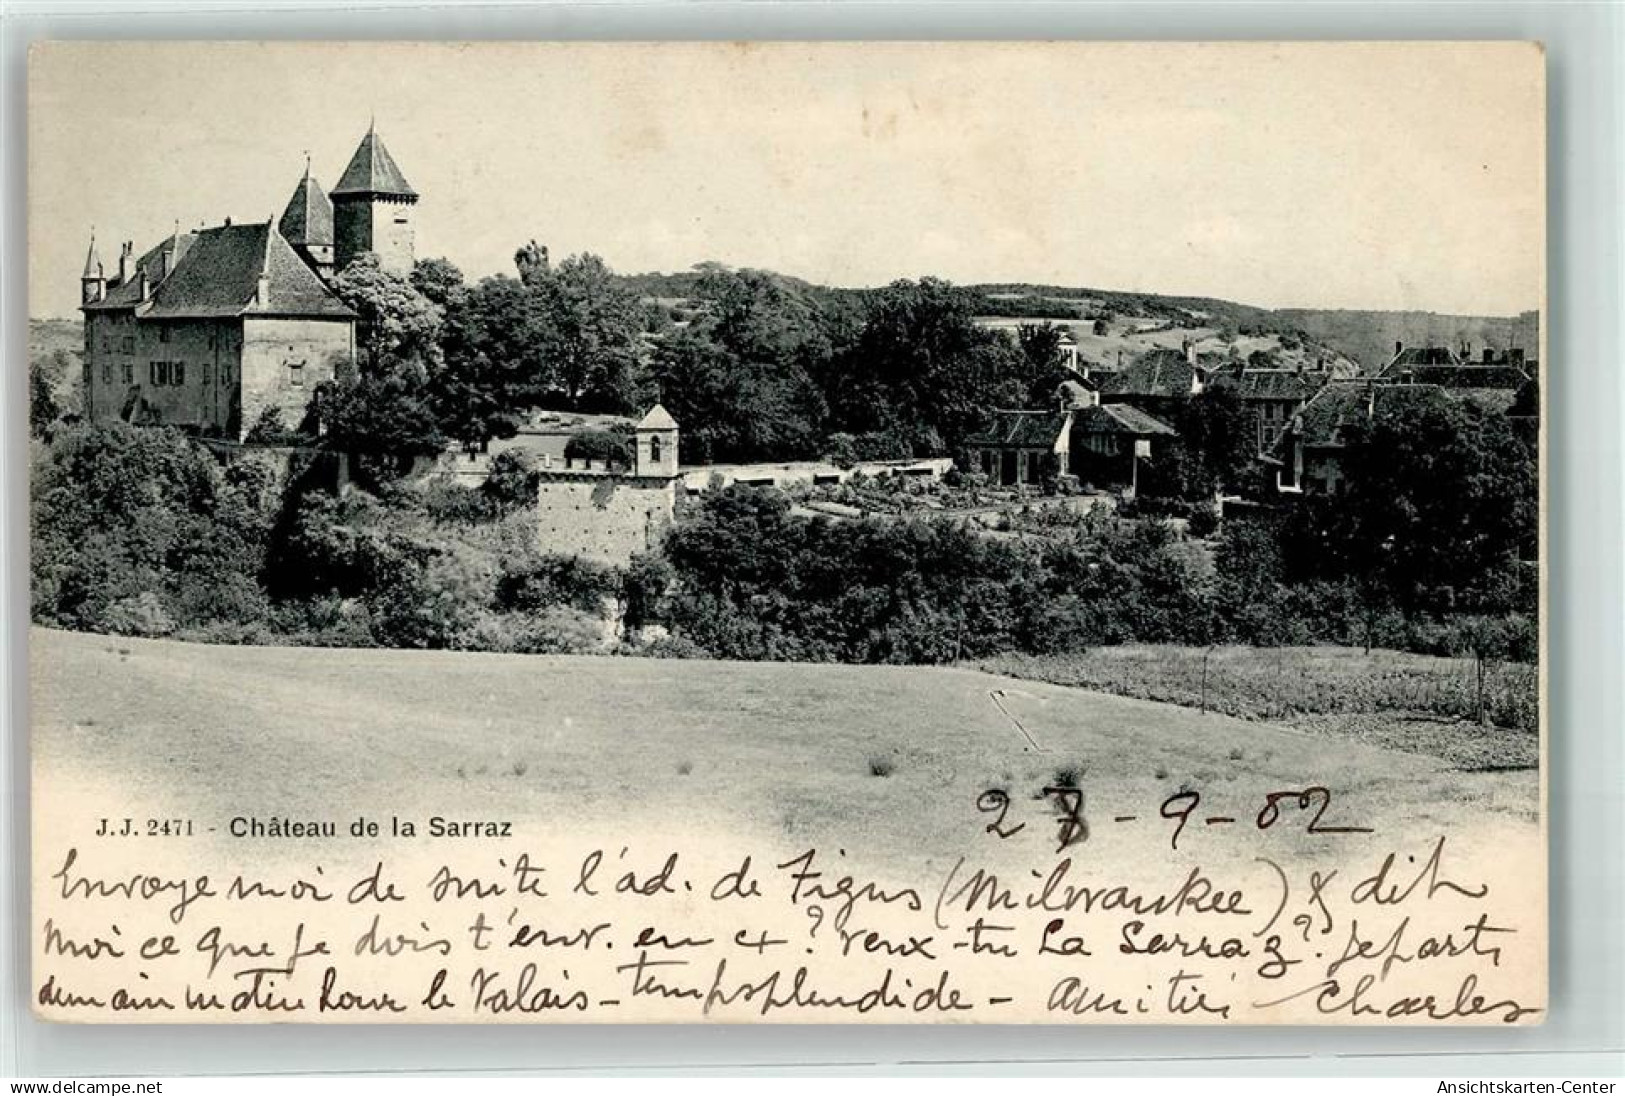 J.J. 2471 - Château de la Sarraz
27-9-02
Envoye moi de suite l'ad. de Figus (Milwaukee) & dit
moi ce que je dois t'env. en 4? veux-tu La Sarraz? Je parts
demain matin pour le Valais - temps splendide - Amitiés Charles
www.delcampe.net
Ansichtskarten-Center